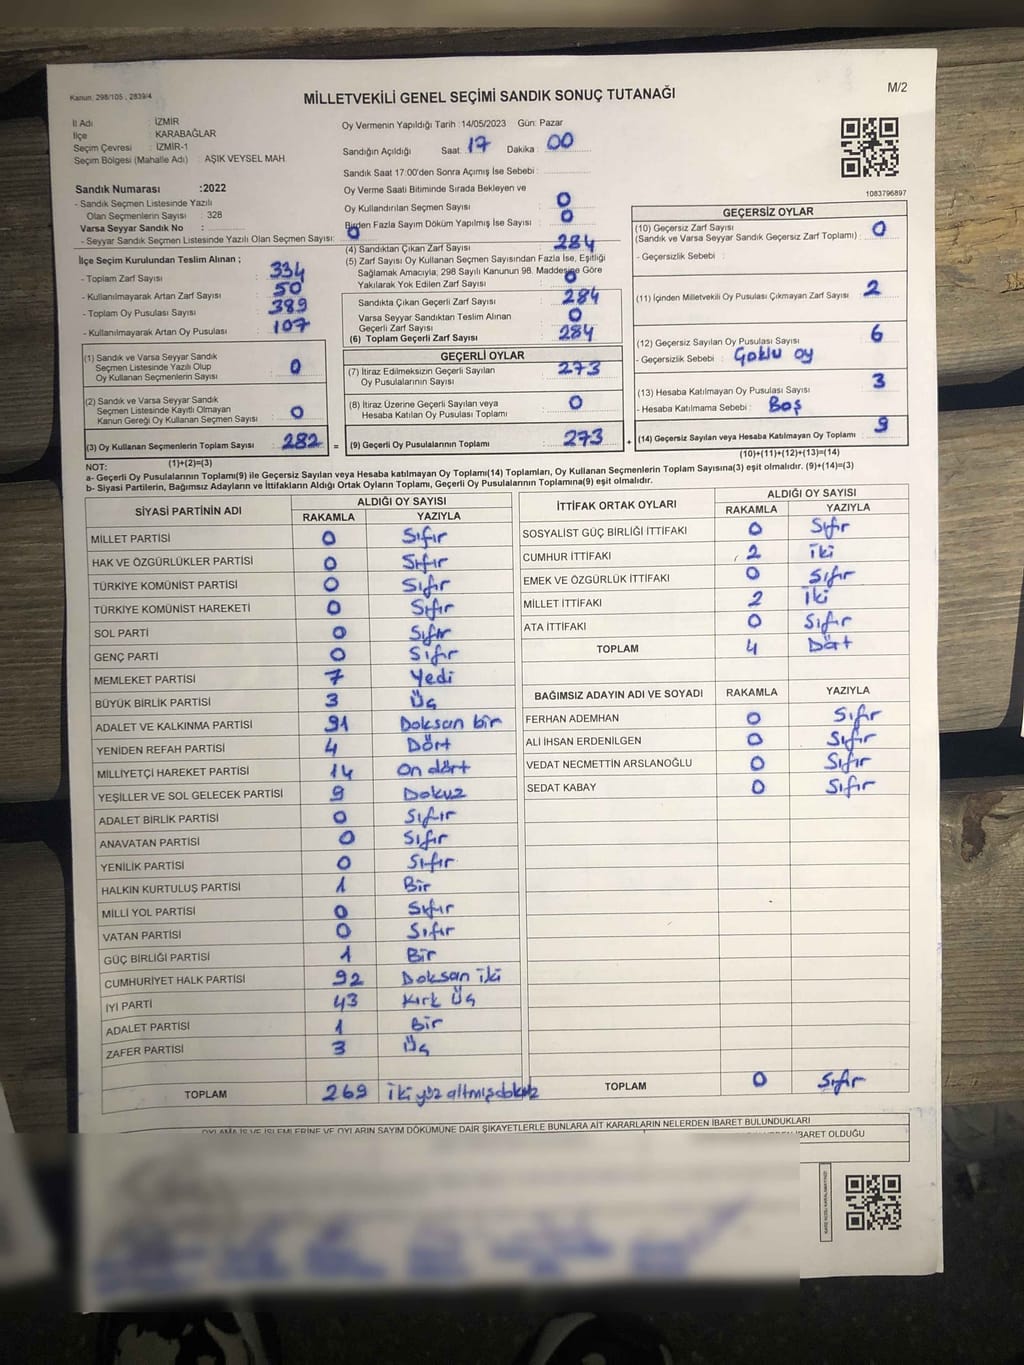 Kanun: 298/105 , 2839/4
MİLLETVEKİLİ GENEL SEÇİMİ SANDIK SONUÇ TUTANAĞI
M/2
İl Adı : İZMİR
İlçe : KARABAĞLAR
Seçim Çevresi : İZMİR-1
Seçim Bölgesi (Mahalle Adı) : AŞIK VEYSEL MAH
Sandık Numarası :2022
- Sandık Seçmen Listesinde Yazılı
Olan Seçmenlerin Sayısı : 328
Varsa Seyyar Sandık No :
- Seyyar Sandık Seçmen Listesinde Yazılı Olan Seçmen Sayısı: 0
İlçe Seçim Kurulundan Teslim Alınan ;
- Toplam Zarf Sayısı : 334
- Kullanılmayarak Artan Zarf Sayısı : 50
- Toplam Oy Pusulası Sayısı : 389
- Kullanılmayarak Artan Oy Pusulası : 107
(1) Sandık ve Varsa Seyyar Sandık
Seçmen Listesinde Yazılı Olup
Oy Kullanan Seçmenlerin Sayısı : 0
(2) Sandık ve Varsa Seyyar Sandık
Seçmen Listesinde Kayıtlı Olmayan
Kanun Gereği Oy Kullanan Seçmen Sayısı : 0
(3) Oy Kullanan Seçmenlerin Toplam Sayısı : 282 =
(1)+(2)=(3)
Oy Vermenin Yapıldığı Tarih :14/05/2023 Gün: Pazar
Sandığın Açıldığı Saat: 17 Dakika : 00
Sandık Saat 17:00'den Sonra Açımış İse Sebebi :
Oy Verme Saati Bitiminde Sırada Bekleyen ve
Oy Kullandırılan Seçmen Sayısı : 0
Birden Fazla Sayım Döküm Yapılmış İse Sayısı : 0
(4) Sandıktan Çıkan Zarf Sayısı : 284
(5) Zarf Sayısı Oy Kullanan Seçmen Sayısından Fazla İse, Eşitliği
Sağlamak Amacıyla, 298 Sayılı Kanunun 98. Maddesine Göre
Yakılarak Yok Edilen Zarf Sayısı : 0
Sandıkta Çıkan Geçerli Zarf Sayısı : 284
Varsa Seyyar Sandıktan Teslim Alınan
Geçerli Zarf Sayısı : 0
(6) Toplam Geçerli Zarf Sayısı : 284
GEÇERLİ OYLAR
(7) İtiraz Edilmeksizin Geçerli Sayılan
Oy Pusulalarının Sayısı : 273
(8) İtiraz Üzerine Geçerli Sayılan veya
Hesaba Katılan Oy Pusulası Toplamı : 0
(9) Geçerli Oy Pusulalarının Toplamı : 273 +
1083796897
GEÇERSİZ OYLAR
(10) Geçersiz Zarf Sayısı
(Sandık ve Varsa Seyyar Sandık Geçersiz Zarf Toplamı) : 0
- Geçersizlik Sebebi :
(11) İçinden Milletvekili Oy Pusulası Çıkmayan Zarf Sayısı : 2
(12) Geçersiz Sayılan Oy Pusulası Sayısı : 6
- Geçersizlik Sebebi : Çoklu oy
(13) Hesaba Katılmayan Oy Pusulası Sayısı : 3
- Hesaba Katılmama Sebebi : Boş
(14) Geçersiz Sayılan veya Hesaba Katılmayan Oy Toplamı : 9
(10)+(11)+(12)+(13)=(14)
NOT:
a- Geçerli Oy Pusulalarının Toplamı(9) ile Geçersiz Sayılan veya Hesaba katılmayan Oy Toplamı(14) Toplamları, Oy Kullanan Seçmenlerin Toplam Sayısına(3) eşit olmalıdır. (9)+(14)=(3)
b- Siyasi Partilerin, Bağımsız Adayların ve İttifakların Aldığı Ortak Oyların Toplamı, Geçerli Oy Pusulalarının Toplamına(9) eşit olmalıdır.
SİYASİ PARTİNİN ADI ALDIĞI OY SAYISI
RAKAMLA YAZIYLA
MİLLET PARTİSİ 0 Sıfır
HAK VE ÖZGÜRLÜKLER PARTİSİ 0 Sıfır
TÜRKİYE KOMÜNİST PARTİSİ 0 Sıfır
TÜRKİYE KOMÜNİST HAREKETİ 0 Sıfır
SOL PARTİ 0 Sıfır
GENÇ PARTİ 0 Sıfır
MEMLEKET PARTİSİ 7 Yedi
BÜYÜK BİRLİK PARTİSİ 3 Üç
ADALET VE KALKINMA PARTİSİ 91 Doksan bir
YENİDEN REFAH PARTİSİ 4 Dört
MİLLİYETÇİ HAREKET PARTİSİ 14 on dört
YEŞİLLER VE SOL GELECEK PARTİSİ 9 Dokuz
ADALET BİRLİK PARTİSİ 0 Sıfır
ANAVATAN PARTİSİ 0 Sıfır
YENİLİK PARTİSİ 0 Sıfır
HALKIN KURTULUŞ PARTİSİ 1 Bir
MİLLİ YOL PARTİSİ 0 Sıfır
VATAN PARTİSİ 0 Sıfır
GÜÇ BİRLİĞİ PARTİSİ 1 Bir
CUMHURİYET HALK PARTİSİ 92 Doksan iki
İYİ PARTİ 43 Kırk Üç
ADALET PARTİSİ 1 Bir
ZAFER PARTİSİ 3 Üç
TOPLAM 269 iki yüz altmış dokuz
İTTİFAK ORTAK OYLARI ALDIĞI OY SAYISI
RAKAMLA YAZIYLA
SOSYALİST GÜÇ BİRLİĞİ İTTİFAKI 0 Sıfır
CUMHUR İTTİFAKI 2 iki
EMEK VE ÖZGÜRLÜK İTTİFAKI 0 Sıfır
MİLLET İTTİFAKI 2 iki
ATA İTTİFAKI 0 Sıfır
TOPLAM 4 Dört
BAĞIMSIZ ADAYIN ADI VE SOYADI RAKAMLA YAZIYLA
FERHAN ADEMHAN 0 Sıfır
ALİ İHSAN ERDENİLGEN 0 Sıfır
VEDAT NECMETTİN ARSLANOĞLU 0 Sıfır
SEDAT KABAY 0 Sıfır
TOPLAM 0 Sıfır
OYLAMA İŞ VE İŞLEMLERİNE VE OYLARIN SAYIM DÖKÜMÜNE DAİR ŞİKAYETLERLE BUNLARA AİT KARARLARIN NELERDEN İBARET BULUNDUKLARI
İBARET OLDUĞU